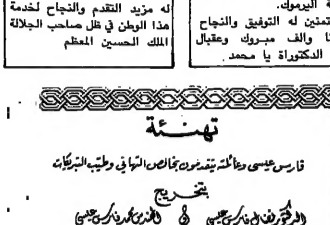 له مزيد التقدم والنجاح لخدمة
هذا الوطن في ظل صاحب الجلالة
الملك الحسين المعظم
ة اليرموك.
تمنين له التوفيق والنجاح
ا والف مبروك وعقبال
الدكتوراة يا محمد
تهنئة
فارس عيسى وعائلته يتقدمون بخالص التهاني وطيب التبريكات
بتخريج
الدكتور نضال فارس عيسى & المهندس محمد فارس عيسى